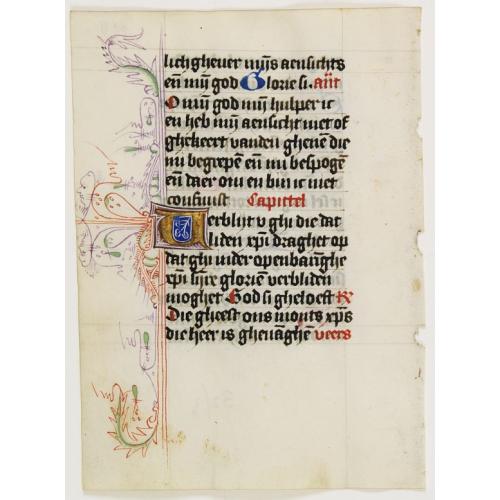 lichgheuer mijns aensichts
en̄ mijn god Glorie si. an̄t
O mijn god mijn hulper ic
en heb mijn aensicht niet of
ghekeert vanden ghenē die
mi begrepē en̄ mi bespogē
en̄ daer om en bin ic niet
confuust Capittel
Verblijt v ghi die dat
liden xp̄i draghet op
dat ghi in der openbaringhe
xp̄i sijnre gloriēn verbliden
moghet God si gheloeft R
Die gheest ons monts xp̄s
die heer is gheuāghē veers